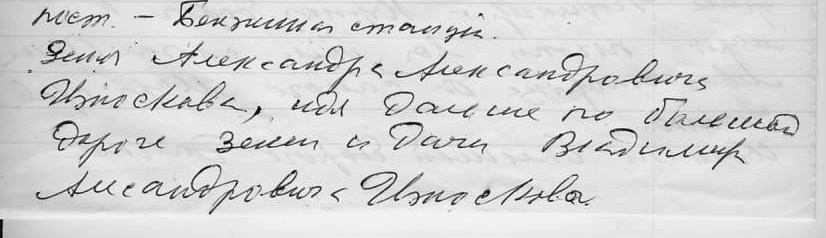 пост. – Бензинная станция.
Земля Александра Александровича
Износкова, идя дальше по большой
дороге земля и дача Владимир
Алесандровича Износкова.